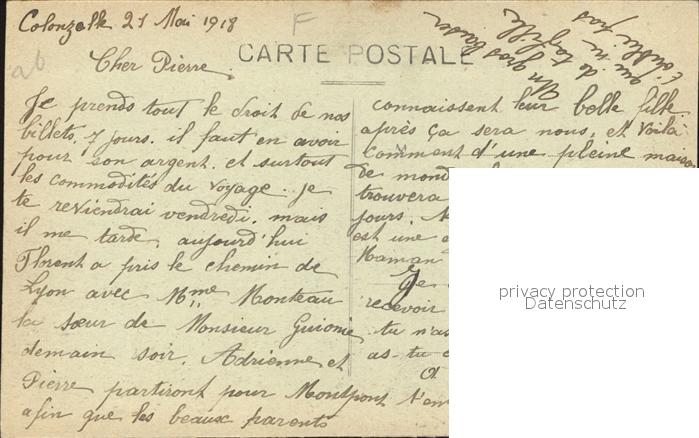 Colonzelle 21 Mai 1918
F
CARTE POSTALE
Cher Pierre
Je prends tout le droit de nos
billets, 7 jours. il faut en avoir
pour son argent. et surtout
les commodités du voyage. je
te reviendrai vendredi. mais
il me tarde. aujourd'hui
Florent a pris le chemin de
Lyon avec Mme Monteau
la sœur de Monsieur Guione
demain soir. Adrienne et
Pierre partiront pour Montpont
afin que les beaux parents
connaissent leur belle fille
après ça sera nous, et voilà
comment d'une pleine maison
de mond
trouvera
jours.
est une
Maman
Je
recevoir
tu n'as
as-tu
t'em
Un gros baiser
de ta fille
qui ne
t'oublie pas
privacy protection
Datenschutz